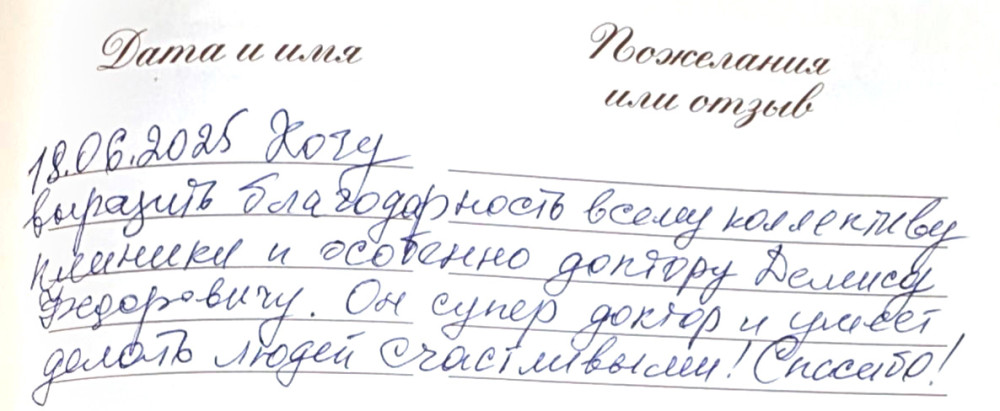 Дата и имя
Пожелания
или отзыв
18.06.2025 Хочу
выразить благодарность всему коллективу
клиники и особенно доктору Демису
Федоровичу. Он супер доктор и умеет
делать людей счастливыми! Спасибо!